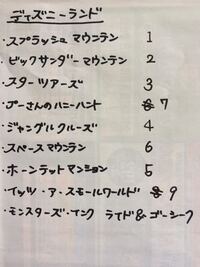 ディズニーランド
・スプラッシュ マウンテン 1
・ビックサンダーマウンテン 2
・スターツアーズ 3
・プーさんのハニーハント 7
・ジャングルクルーズ 4
・スペースマウンテン 6
・ホーンテットマンション 5
・イッツ・ア・スモールワールド 9
・モンスターズ・インク ライド&ゴーシーク